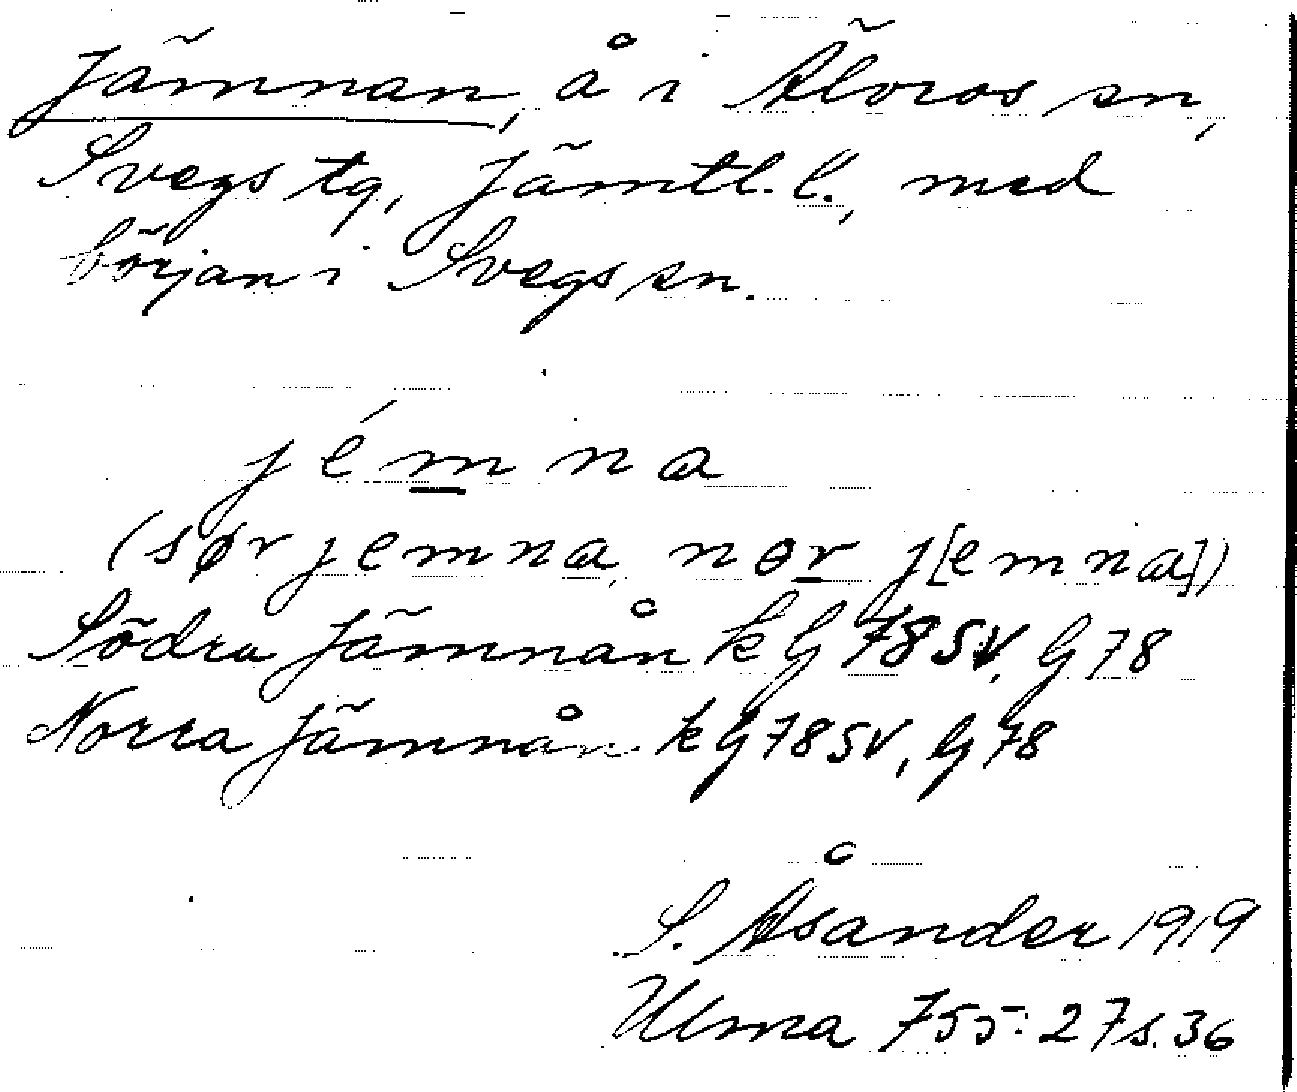 Jämnan, å i Älvros sn,
Svegs tg, Jämtl. l., med
början i Svegs sn.
jémna
(sør jemna, nor j[emna])
Södra Jämnån k G 78 SV, G 78
Norra Jämnån k G 78 SV, G 78
S. Åsander 1919
Ulma 755: 27 s. 36